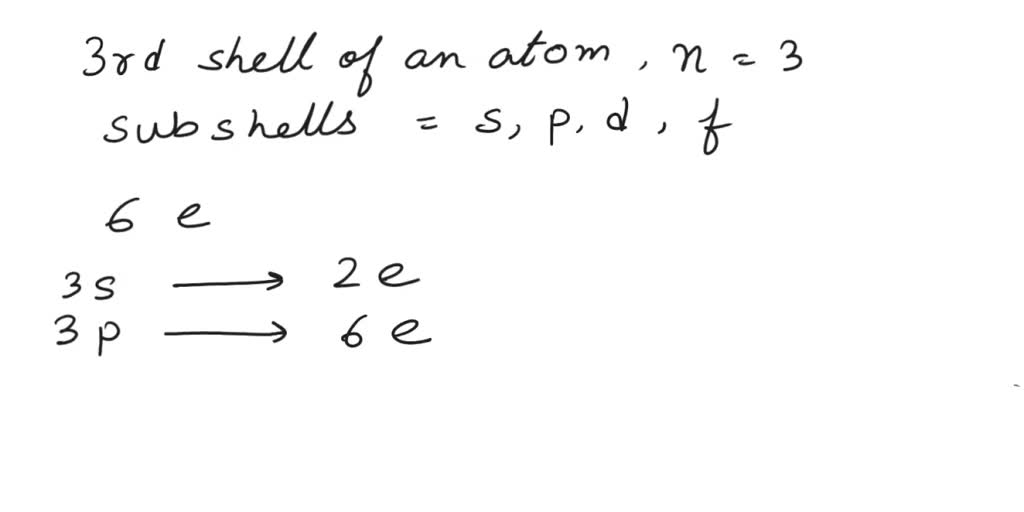 3rd shell of an atom, n = 3
subshells = s, p, d, f
6 e
3s → 2e
3p → 6e